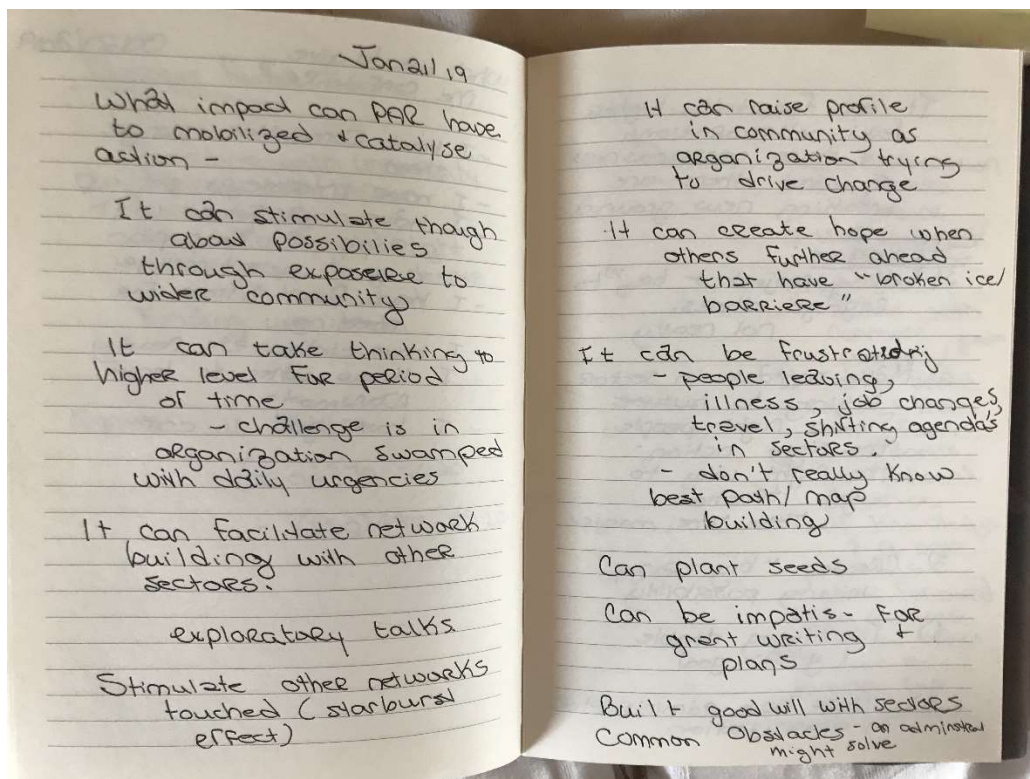 Jan 21/19
What impact can PAR have
to mobilized + catalyse
action -
It can stimulate though
about possibilies
through exposure to
wider community
It can take thinking to
higher level for period
of time
- challenge is in
organization swamped
with daily urgencies
It can facilitate network
building with other
sectors.
exploratory talks
Stimulate other networks
touched (starburst
effect)
It can raise profile
in community as
organization trying
to drive change
It can create hope when
others further ahead
that have "broken ice/
barriere"
It can be frustrating
- people leaving,
illness, job changes,
travel, shifting agenda's
in sectors.
- don't really know
best path/map
building
Can plant seeds
Can be impatis - for
grant writing +
plans
Built good will with sectors
Common Obstacles - an
might solve